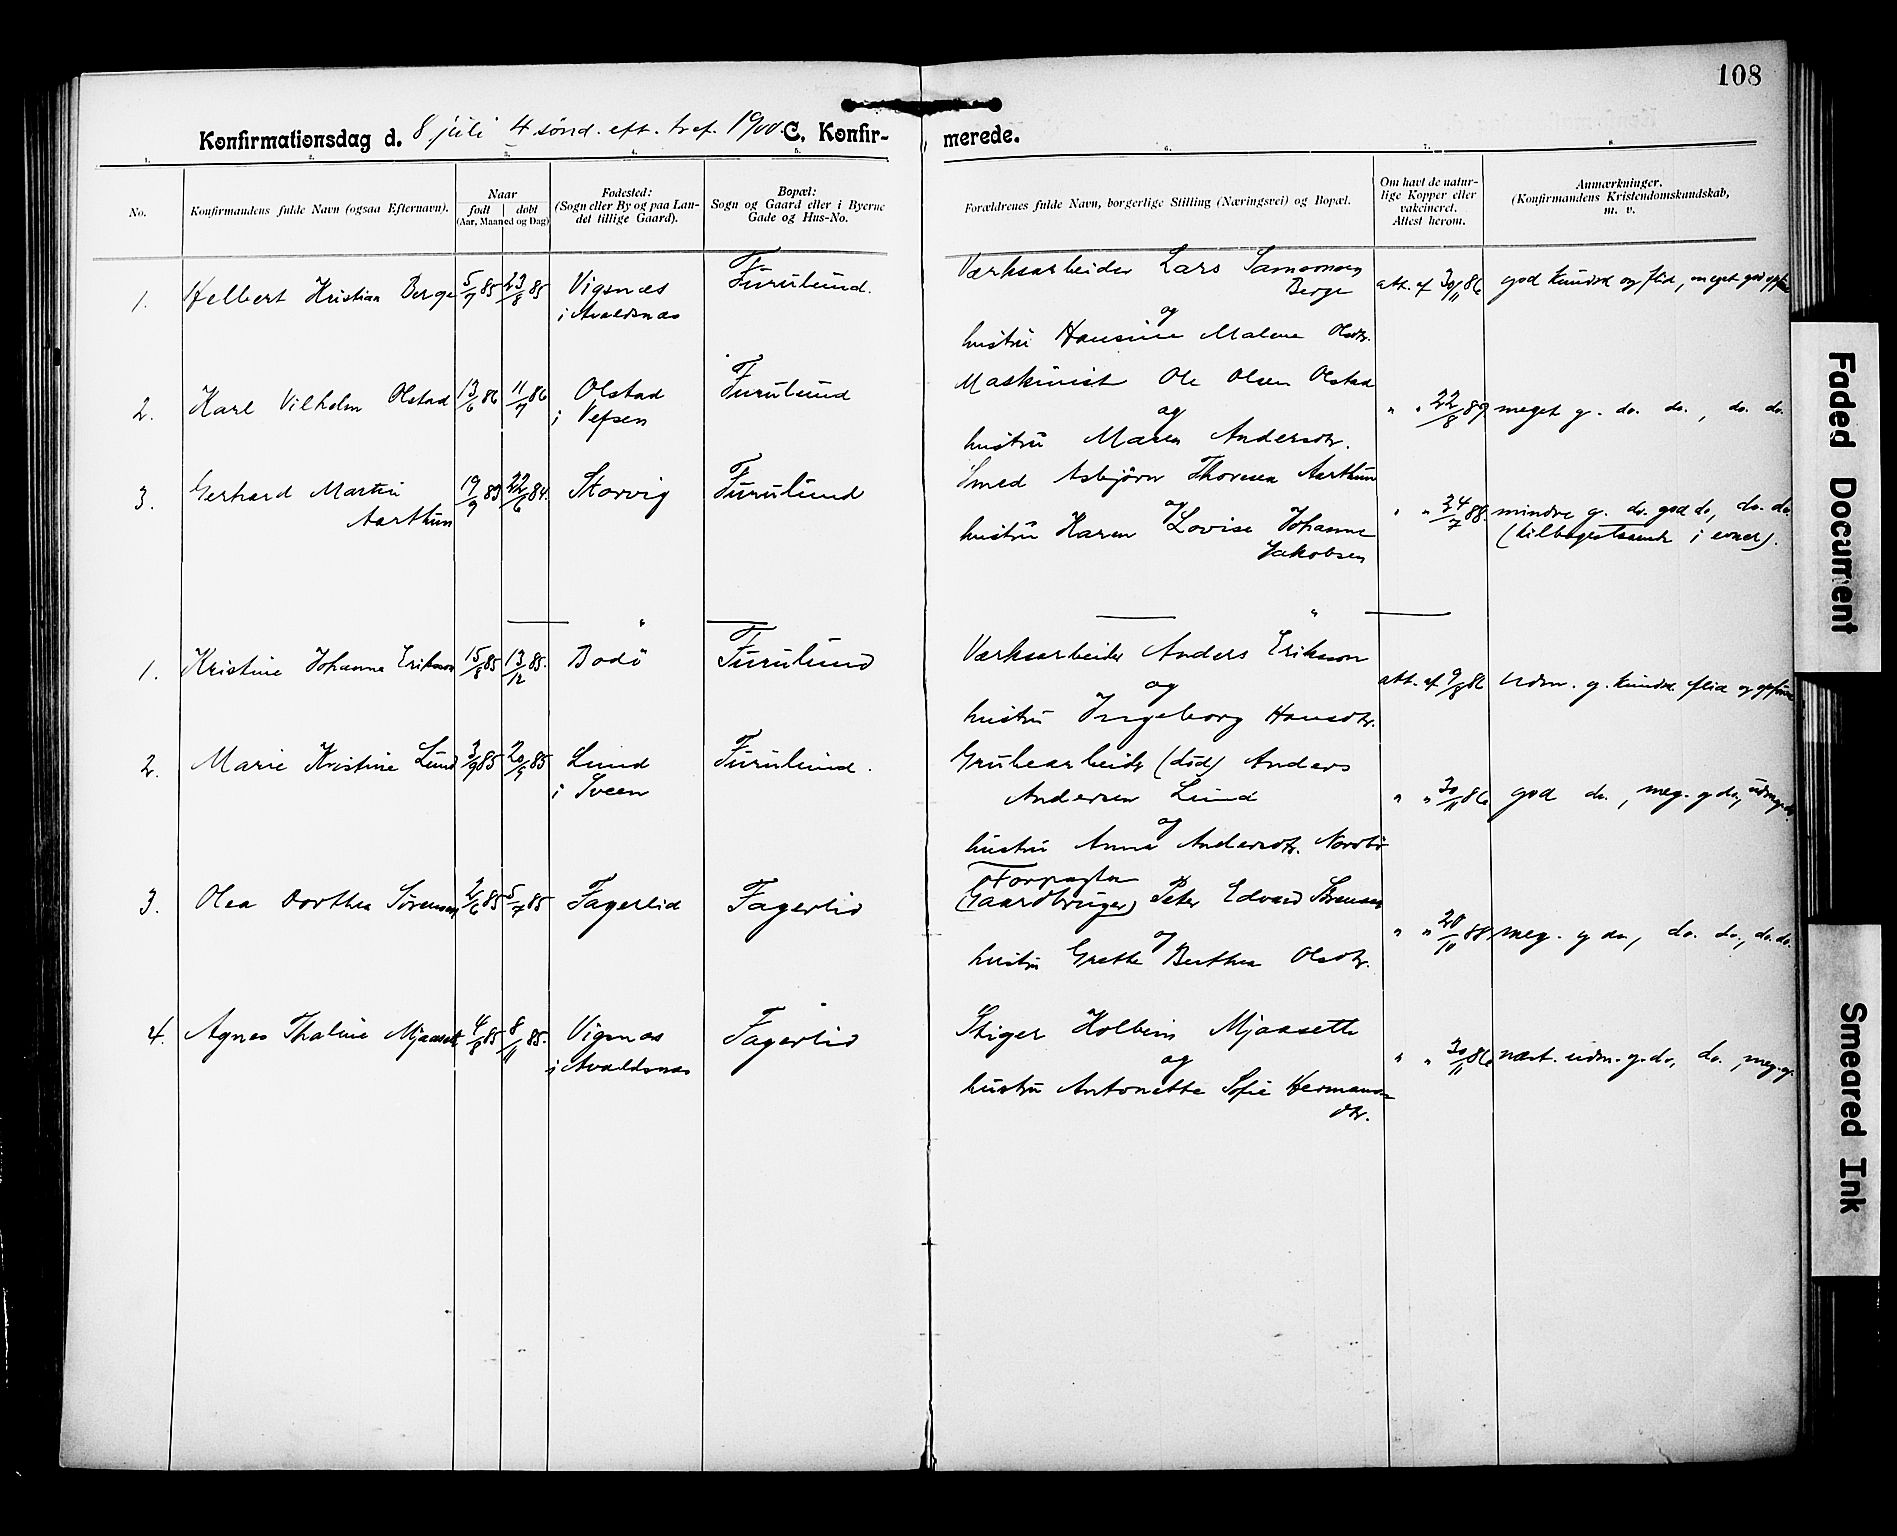 108
Konfirmationsdag d. 8 juli 4 sønd. eft. tref. 1900. C. Konfir-
merede.
1. 2. 3. 4. 5. 6. 7. 8.
No.
Konfirmandens fulde Navn (ogsaa Efternavn).
Naar
født
døbt
(Aar, Maaned og Dag)
Fødested:
(Sogn eller By og paa Lan-
det tillige Gaard).
Bopæl:
Sogn og Gaard eller i Byerne
Gade og Hus-No.
Forældrenes fulde Navn, borgerlige Stilling (Næringsvei) og Bopæl.
Om havt de natur-
lige Kopper eller
vakcineret.
Attest herom.
Anmærkninger.
(Konfirmandens Kristendomskundskab,
m. v.
1. Helbert Kristian Berge 5/7 85 23/8 85 Vigsnæs Furulund. Værksarbeider Lars
i Avaldsnæs
Berge att. af 30/11 86 god kundsk og flid, meget god opfør
og
hustru Hansine Malene Olsdtr.
2. Karl Vilhelm Olstad 13/6 86 11/7 86 Olstad Furulund Maskinist Ole Olsen Olstad
i Vefsen
og " " 22/8 89 meget g. do. do., do. do.
hustru Maren Andersdtr.
3. Gerhard Martin 19/9 83 22/6 84. Storvig Furulund Smed Asbjörn Thoresen Aarthun
Aarthun
og " " 24/7 88. mindre g. do. god do, do. do
hustru Karen Lovise Johanne (tilbagestaaende i evner).
Jakobsen
"
"
1. Kristine Johanna Erikson 15/8 85 13/12 85. Bodö Furulund Værksarbeider Anders Erikson
og att. af 9/8 86 Udm. g. kundsk. flid og opførs
hustru Ingeborg Hansdtr.
2. Marie Kristine Lund 3/9 85 20/9 85 Lund Furulund. Grubearbeider (död) Anders
i Sveen
Andersen Lund " " 30/11 86 god do., meg. g do,
og
hustru Anna Andersdtr. Nordbö
Forpagter
3. Olea Dorthea Sörensen 2/6 85 5/7 85 Fagerlid Fagerlid (Gaardbruger) Peter Edvard Sörensen
og " " 28/10 88. meg. g do, do. do., do. do.
hustru Grethe Berthea Olsdtr.
4. Agnes Thaline Mjaaseth 4/8 85 8/11 85. Vigsnæs Fagerlid Stiger Kolbein Mjaaseth
i Avaldsnæs
og " " 30/11 86 næst. udm. g. do, do., meg. g.
hustru Antonette Sofie Hermans
dtr.
Faded Document
Smeared Ink